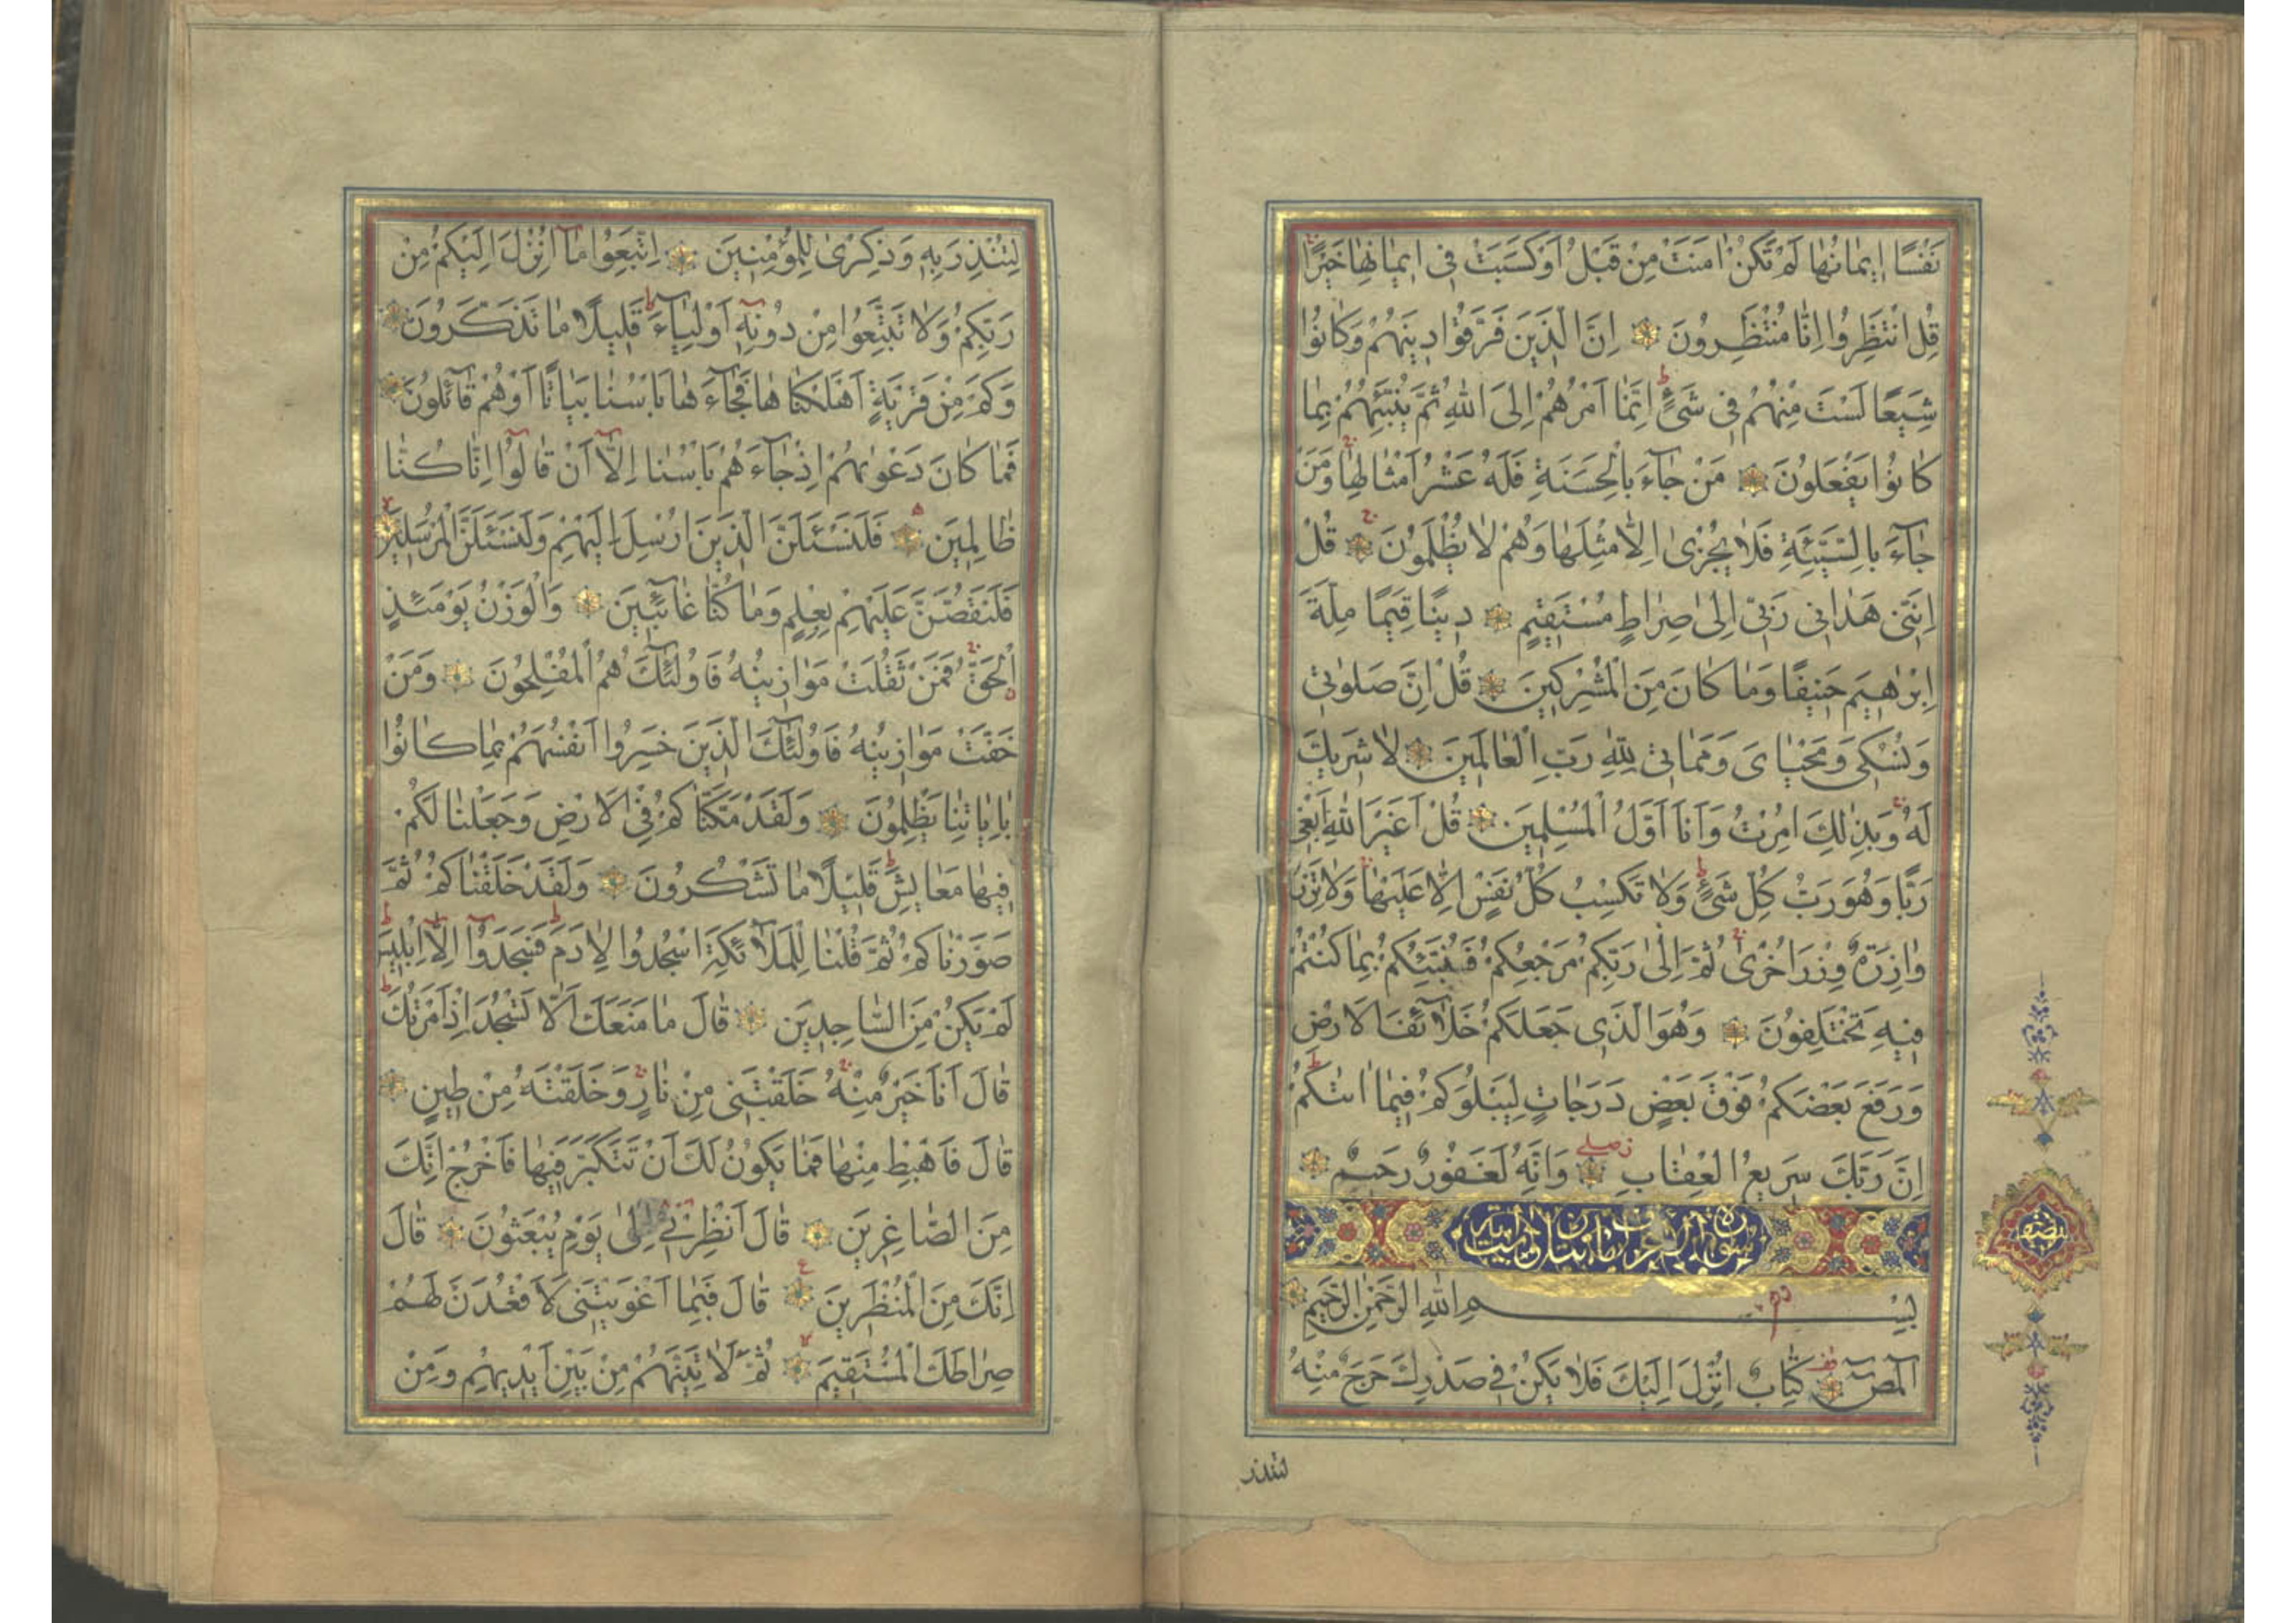 نَفْسًا اِيمَانُهَا لَمْ تَكُنْ اٰمَنَتْ مِنْ قَبْلُ اَوْ كَسَبَتْ فِى اِيمَانِهَا خَيْرًا
قُلِ انْتَظِرُوا اِنَّا مُنْتَظِرُونَ اِنَّ الَّذِينَ فَرَّقُوا دِينَهُمْ وَكَانُوا
شِيَعًا لَسْتَ مِنْهُمْ فِى شَىْءٍ اِنَّمَا اَمْرُهُمْ اِلَى اللّٰهِ ثُمَّ يُنَبِّئُهُمْ بِمَا
كَانُوا يَفْعَلُونَ مَنْ جَآءَ بِالْحَسَنَةِ فَلَهُ عَشْرُ اَمْثَالِهَا وَمَنْ
جَآءَ بِالسَّيِّئَةِ فَلَا يُجْزٰى اِلَّا مِثْلَهَا وَهُمْ لَا يُظْلَمُونَ قُلْ
اِنَّنِى هَدَانِى رَبِّى اِلٰى صِرَاطٍ مُسْتَقِيمٍ دِينًا قِيَمًا مِلَّةَ
اِبْرٰهِيمَ حَنِيفًا وَمَا كَانَ مِنَ الْمُشْرِكِينَ قُلْ اِنَّ صَلَوٰتِى
وَنُسُكِى وَمَحْيَاىَ وَمَمَاتِى لِلّٰهِ رَبِّ الْعَالَمِينَ لَا شَرِيكَ
لَهُ وَبِذٰلِكَ اُمِرْتُ وَاَنَا اَوَّلُ الْمُسْلِمِينَ قُلْ اَغَيْرَ اللّٰهِ اَبْغِى
رَبًّا وَهُوَ رَبُّ كُلِّ شَىْءٍ وَلَا تَكْسِبُ كُلُّ نَفْسٍ اِلَّا عَلَيْهَا وَلَا تَزِرُ
وَازِرَةٌ وِزْرَ اُخْرٰى ثُمَّ اِلٰى رَبِّكُمْ مَرْجِعُكُمْ فَيُنَبِّئُكُمْ بِمَا كُنْتُمْ
فِيهِ تَخْتَلِفُونَ وَهُوَ الَّذِى جَعَلَكُمْ خَلَآئِفَ الْاَرْضِ
وَرَفَعَ بَعْضَكُمْ فَوْقَ بَعْضٍ دَرَجَاتٍ لِيَبْلُوَكُمْ فِيمَا اٰتٰيكُمْ
اِنَّ رَبَّكَ سَرِيعُ الْعِقَابِ وَاِنَّهُ لَغَفُورٌ رَحِيمٌ
نصف
بِسْمِ اللّٰهِ الرَّحْمٰنِ الرَّحِيمِ
الٓمٓصٓ كِتَابٌ اُنْزِلَ اِلَيْكَ فَلَا يَكُنْ فِى صَدْرِكَ حَرَجٌ مِنْهُ
لتنذر
لِتُنْذِرَ بِهِ وَذِكْرٰى لِلْمُؤْمِنِينَ اِتَّبِعُوا مَآ اُنْزِلَ اِلَيْكُمْ مِنْ
رَبِّكُمْ وَلَا تَتَّبِعُوا مِنْ دُونِهِ اَوْلِيَآءَ قَلِيلًا مَا تَذَكَّرُونَ
وَكَمْ مِنْ قَرْيَةٍ اَهْلَكْنَاهَا فَجَآءَهَا بَاْسُنَا بَيَاتًا اَوْ هُمْ قَآئِلُونَ
فَمَا كَانَ دَعْوٰيهُمْ اِذْ جَآءَهُمْ بَاْسُنَا اِلَّآ اَنْ قَالُوٓا اِنَّا كُنَّا
ظَالِمِينَ فَلَنَسْئَلَنَّ الَّذِينَ اُرْسِلَ اِلَيْهِمْ وَلَنَسْئَلَنَّ الْمُرْسَلِينَ
فَلَنَقُصَّنَّ عَلَيْهِمْ بِعِلْمٍ وَمَا كُنَّا غَآئِبِينَ وَالْوَزْنُ يَوْمَئِذٍ
الْحَقُّ فَمَنْ ثَقُلَتْ مَوَازِينُهُ فَاُولٰٓئِكَ هُمُ الْمُفْلِحُونَ وَمَنْ
خَفَّتْ مَوَازِينُهُ فَاُولٰٓئِكَ الَّذِينَ خَسِرُوا اَنْفُسَهُمْ بِمَا كَانُوا
بِاٰيَاتِنَا يَظْلِمُونَ وَلَقَدْ مَكَّنَّاكُمْ فِى الْاَرْضِ وَجَعَلْنَا لَكُمْ
فِيهَا مَعَايِشَ قَلِيلًا مَا تَشْكُرُونَ وَلَقَدْ خَلَقْنَاكُمْ ثُمَّ
صَوَّرْنَاكُمْ ثُمَّ قُلْنَا لِلْمَلٰٓئِكَةِ اسْجُدُوا لِاٰدَمَ فَسَجَدُوٓا اِلَّآ اِبْلِيسَ
لَمْ يَكُنْ مِنَ السَّاجِدِينَ قَالَ مَا مَنَعَكَ اَلَّا تَسْجُدَ اِذْ اَمَرْتُكَ
قَالَ اَنَا خَيْرٌ مِنْهُ خَلَقْتَنِى مِنْ نَارٍ وَخَلَقْتَهُ مِنْ طِينٍ
قَالَ فَاهْبِطْ مِنْهَا فَمَا يَكُونُ لَكَ اَنْ تَتَكَبَّرَ فِيهَا فَاخْرُجْ اِنَّكَ
مِنَ الصَّاغِرِينَ قَالَ اَنْظِرْنِى اِلٰى يَوْمِ يُبْعَثُونَ قَالَ
اِنَّكَ مِنَ الْمُنْظَرِينَ قَالَ فَبِمَا اَغْوَيْتَنِى لَاَقْعُدَنَّ لَهُمْ
صِرَاطَكَ الْمُسْتَقِيمَ ثُمَّ لَاٰتِيَنَّهُمْ مِنْ بَيْنِ اَيْدِيهِمْ وَمِنْ